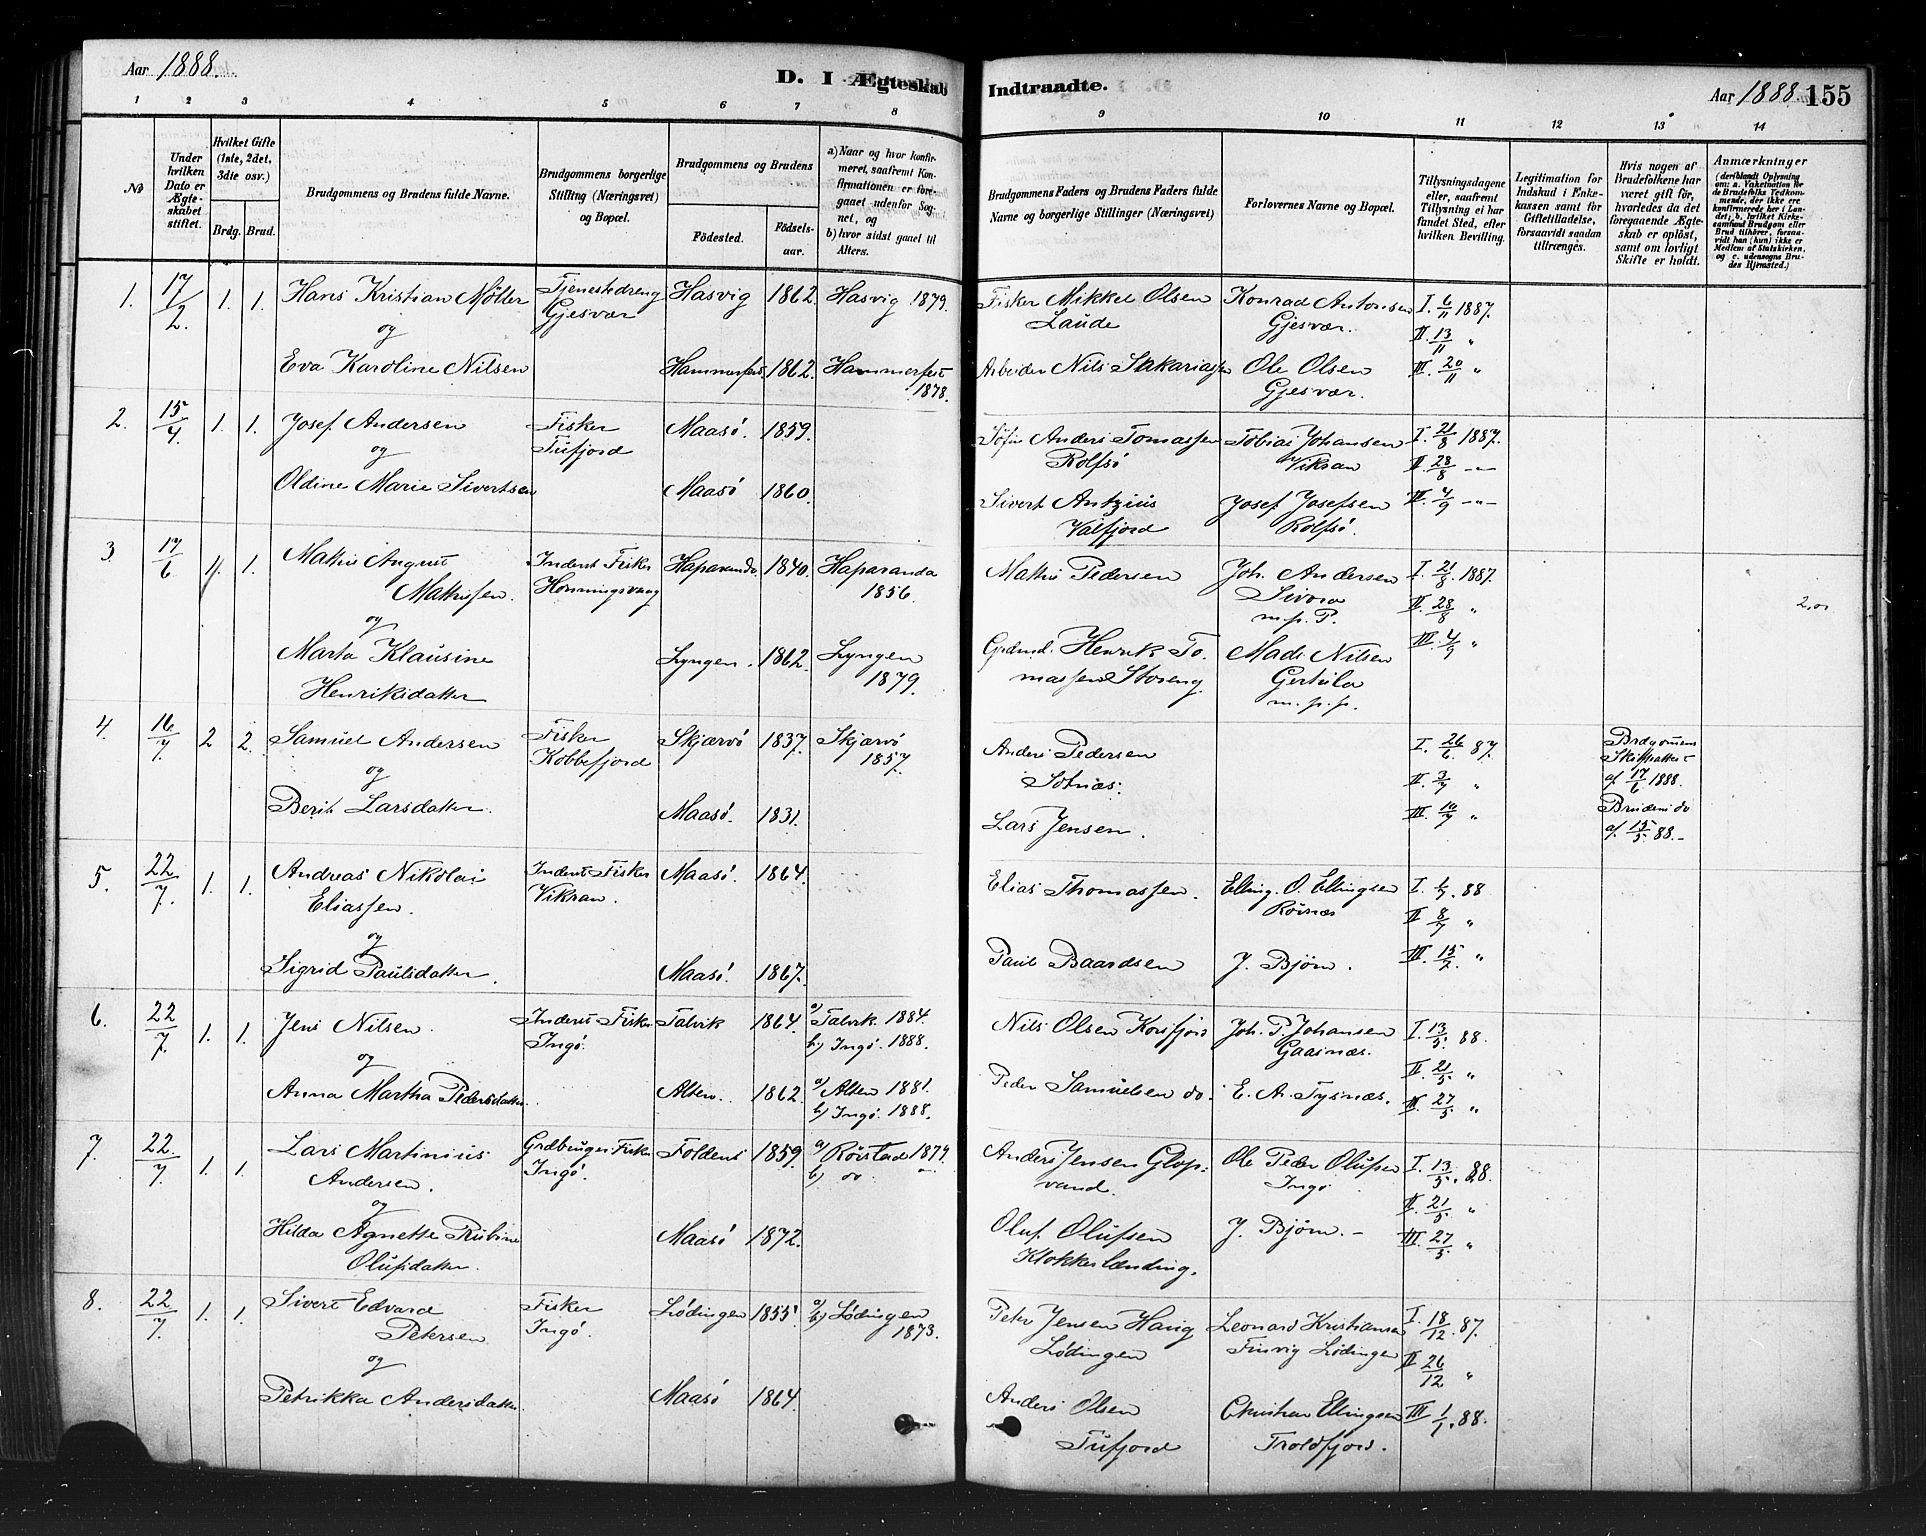 Aar 1888.
D. I Ægteskab Indtraadte.
Aar 1888. 155
1 2 3 4 5 6 7 8 9 10 11 12 13 14
No
Under hvilken Dato er Ægteskabet stiftet.
Hvilket Gifte (1ste, 2det, 3die osv.)
Brdg. Brud.
Brudgommens og Brudens fulde Navne.
Brudgommens borgerlige Stilling (Næringsvei) og Bopæl.
Brudgommens og Brudens
Fødested. Fødselsaar.
a) Naar og hvor konfirmeret, saafremt Konfirmationen er foregaaet udenfor Sognet, og
b) hvor sidst gaaet til Alters.
Brudgommens Faders og Brudens Faders fulde Navne og borgerlige Stillinger (Næringsvei)
Forlovernes Navne og Bopæl.
Tillysningsdagene eller, saafremt Tillysning ei har fundet Sted, efter hvilken Bevilling.
Legitimation for Indskud i Enkekassen samt for Giftetilladelse, forsaavidt saadan tiltrænges.
Hvis nogen af Brudefolkene har været gift før, hvorledes da det foregaaende Ægteskab er opløst, samt om lovligt Skifte er holdt.
Anmærkninger (deriblandt Oplysning om: a. Vakcination for de Brudefolks Vedkommende, der ikke ere konfirmerede her i Landet, b. hvilket Kirkesamfund Brudgom eller Brud tilhører, forsaavidt han (hun) ikke er Medlem af Statskirken, og c. udensogns Brudes Hjemsted.)
1. 17/2. 1. 1. Hans Kristian Møller Tjenestedreng Hasvig 1862. Hasvig 1879. Fisker Mikkel Olsen Konrad Antonsen I. 6/11 1887.
og Gjesvær Laude Gjesvær. II. 13/11 "
Eva Karoline Nilsen Hammerfest. 1862. Hammerfest 1878. Arbeider Nils Sakariassen Ole Olsen III. 20/11 "
Gjesvær.
2. 15/4. 1. 1. Josef Andersen Fisker Maasø. 1859. Anders Tomassen Tobias Johansen I. 21/8 1887.
og Tufjord Rolfsø Vikran II. 28/8 -"-
Oldine Marie Sivertsen Maasø 1860. Sivert Antzius Josef Josefsen III. 4/9 -"-
Valfjord Rolfsø.
3 17/6 1. 1. Mathis August Inderst Fisker Haparanda 1840. Haparanda Mathis Pedersen Joh. Andersen I. 21/8. 1887.
Mathissen. Honningsvaag 1856. II. 28/8 "
og m. p. P. 2,01
Marta Klausine Lyngen. 1862. Lyngen Henrik To- Mads Nilsen III. 4/9 "
Henriksdatter 1879. massen Storeng. Gertula
m. p. p.
4. 16/7 2 2. Samuel Andersen Fisker Skjærvø 1837. Skjærvø Anders Pedersen I. 26/6. 87. Brdgomens
og Kobbefjord 1857. Sotnæs. II. 3/7 " Skifteattest af 17/6 1888.
Berit Larsdatter. Maasø. 1831. Lars Jensen. III. 10/7 " Brudens do af. 15/5. 88.-
5. 22/7. 1. 1. Andreas Nikolai Inderst Fisker Maasø. 1864. Elias Thomassen. Elling. O. Ellingsen I. 1/7. 88
Eliassen. Vikran. Roisnæs II. 8/7 "
og
Sigrid Paulsdatter. Maasø. 1867. Paul Baardsen J. Bjørn. III. 15/7. "
6. 22/7. 1. 1. Jens Nilsen. Inderst Fisker Talvik 1864. a) Talvik. 1884. Nils Olsen Korsfjord Joh. P. Johansen I. 13/5. 88.
og Ingø. b) Ingø. 1888. Gaasnæs. II. 21/5 "
Anna Martha Pedersdatter. Alten. 1862. a) Alten 1881. Peder Samuelsen do. E. A. Tysnæs. III. 27/5. "
b) Ingø. 1888.
7. 22/7 1. 1. Lars Martinius Grdbruger Fisker Foldens 1859. a) Rörstad 1874. Anders Jensen Glop- Ole Peder Olufsen I. 13/5. 88.
Andersen. Ingø. b) do " vand. Ingø II. 21/5. "
og
Hilda Agnette Rubine Maasø 1872. Oluf Olufsen J. Bjørn. - III. 27/5. "
Olufsdatter. Klokkerlænding.
8. 22/7. 1. 1. Sivert Edvard Fisker Lødingen 1855. a/b) Lødingen Peter Jensen Haug Leonard Kristiansen I. 18/12. 87.
Petersen Ingø. 1873. Lødingen Finvig Lødingen II. 26/12 "
og
Petrikka Andersdatter. Maasø 1864. Anders Olsen Christian Ellingsen III 1/1. 88.
Tufjord Troldfjord.